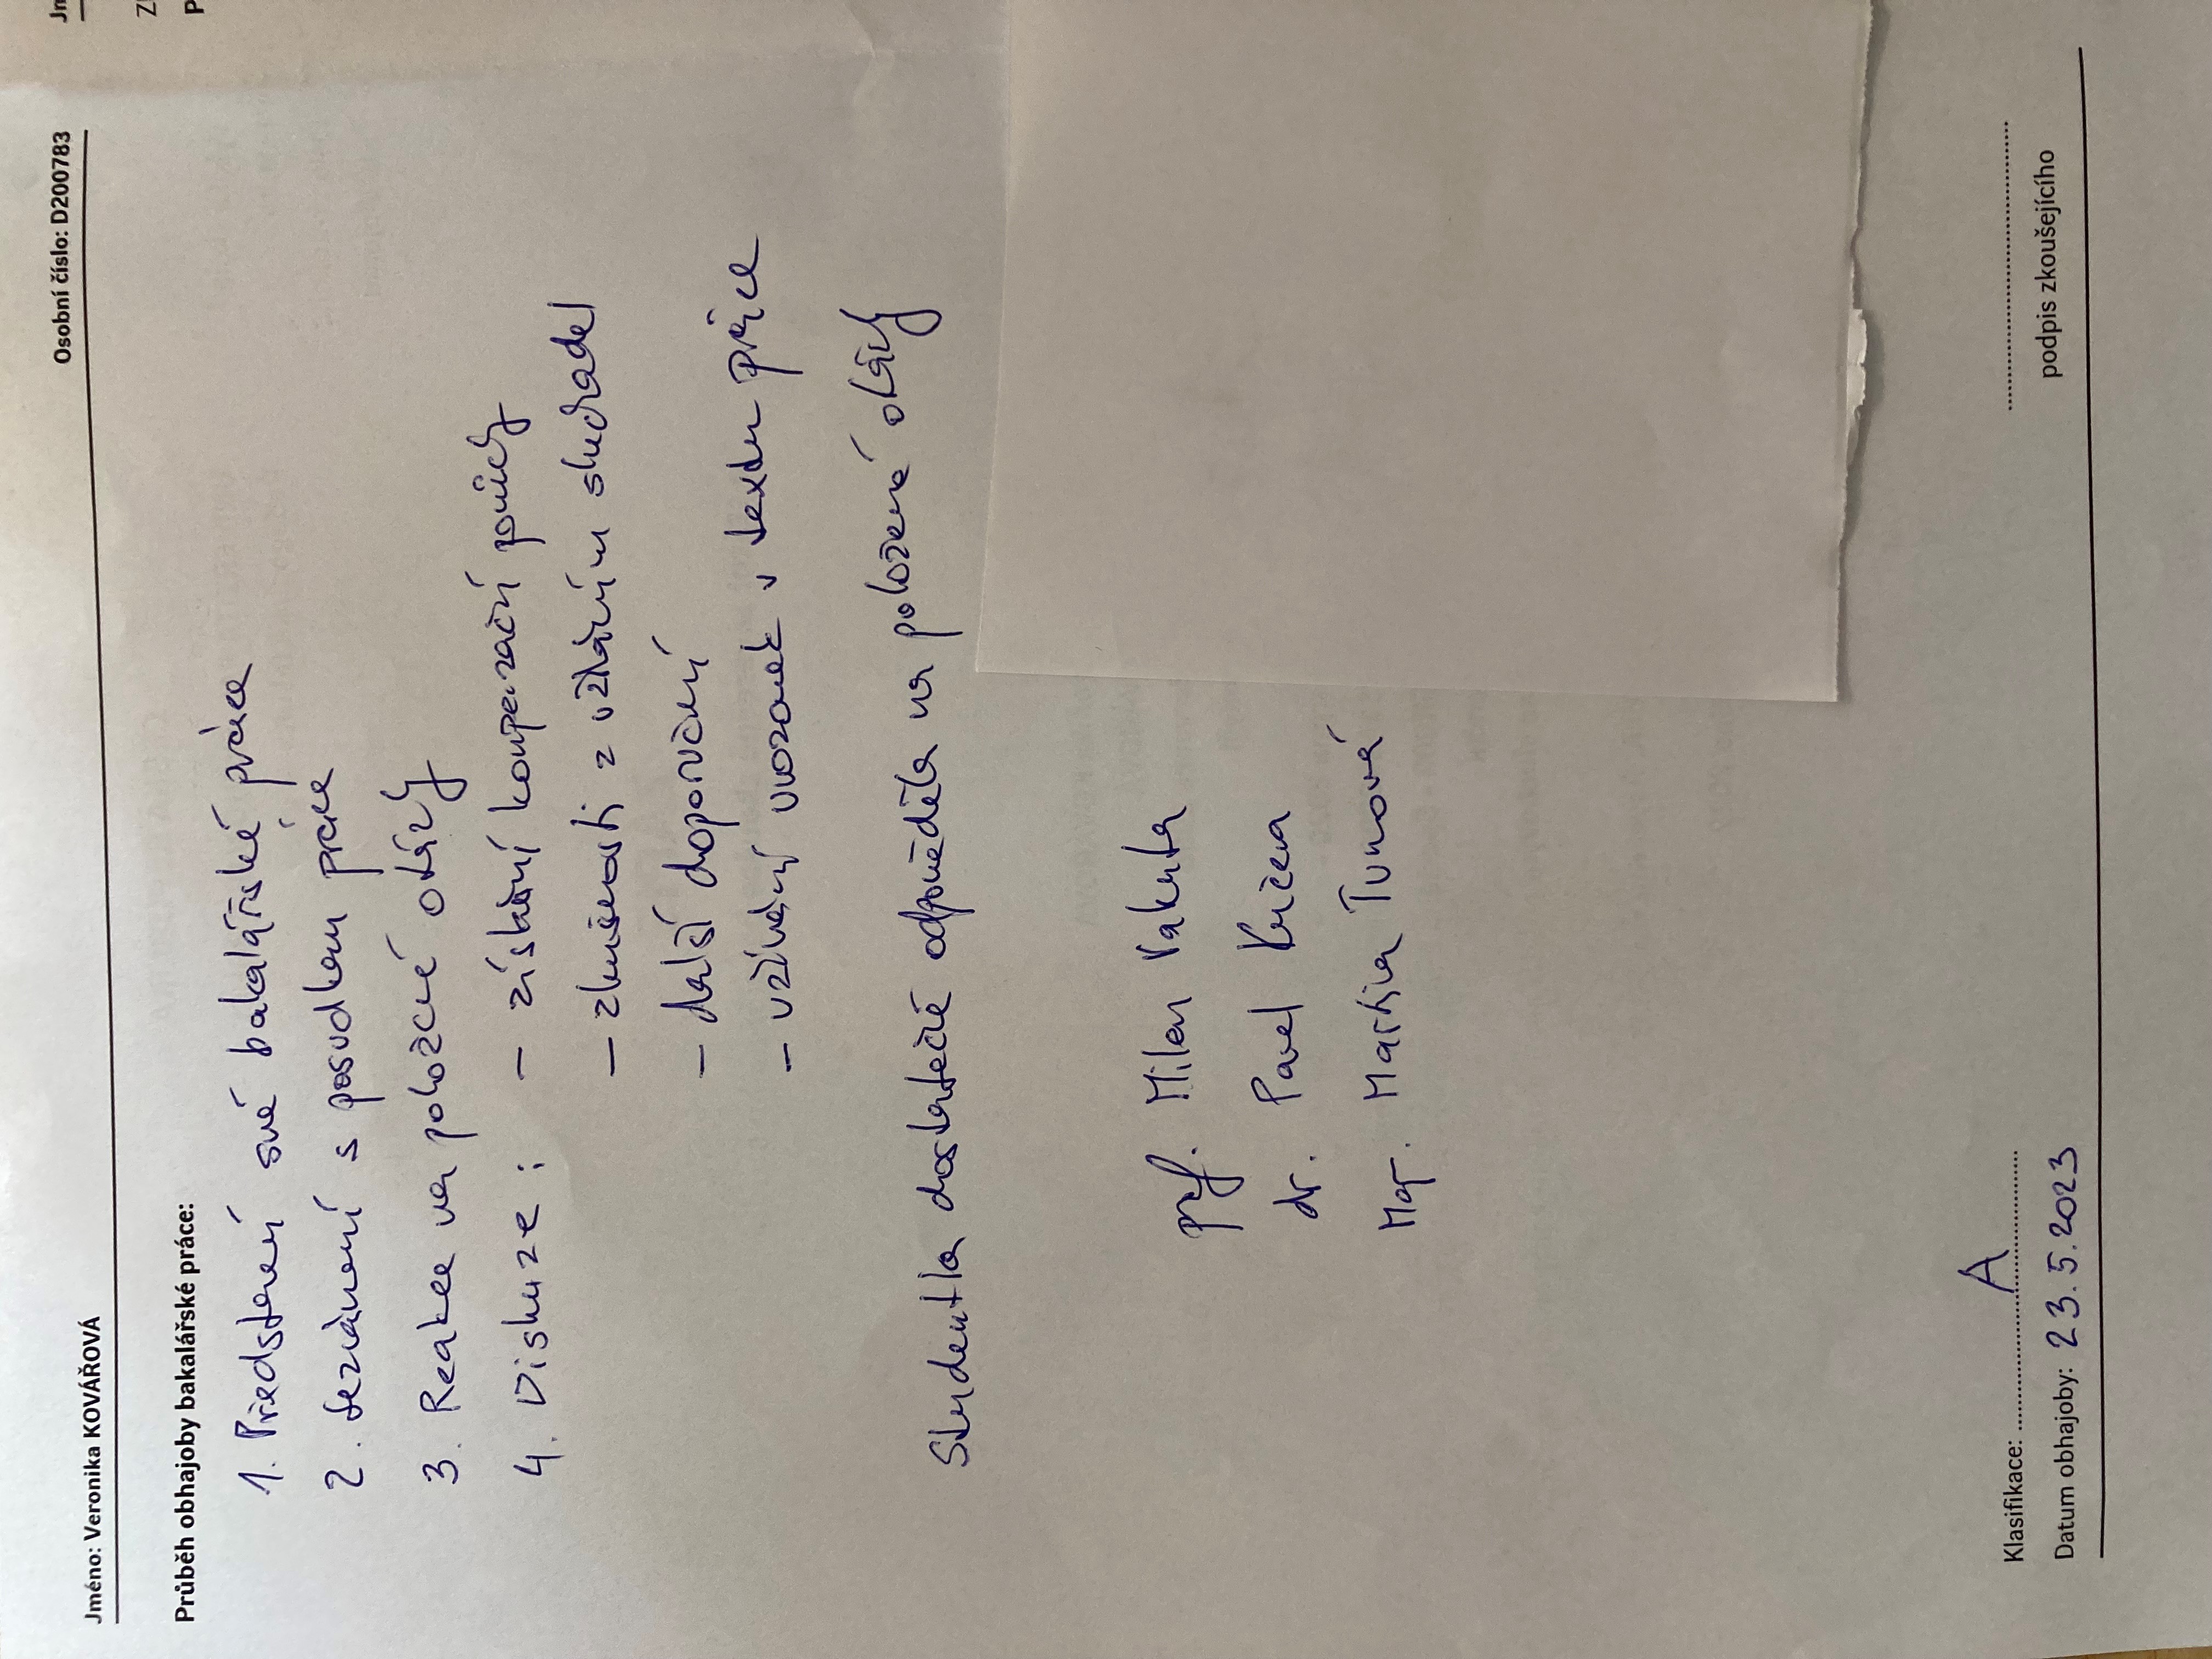 Jméno: Veronika KOVÁŘOVÁ Osobní číslo: D200783
Průběh obhajoby bakalářské práce:
1. Představení své bakalářské práce
2. Seznámení s posudkem práce
3. Reakce na položené otázky
4. Diskuze : - získání kompenzační pomůcky
- zkušenosti z užíváním sluchadel
- další doporučení
- užívání uvozovek v textu práce
Studentka dostatečně odpověděla na položené otázky
prof. Milan
dr. Pavel
Mgr. Martina Tumová
Klasifikace: A
podpis zkoušejícího
Datum obhajoby: 23.5.2023